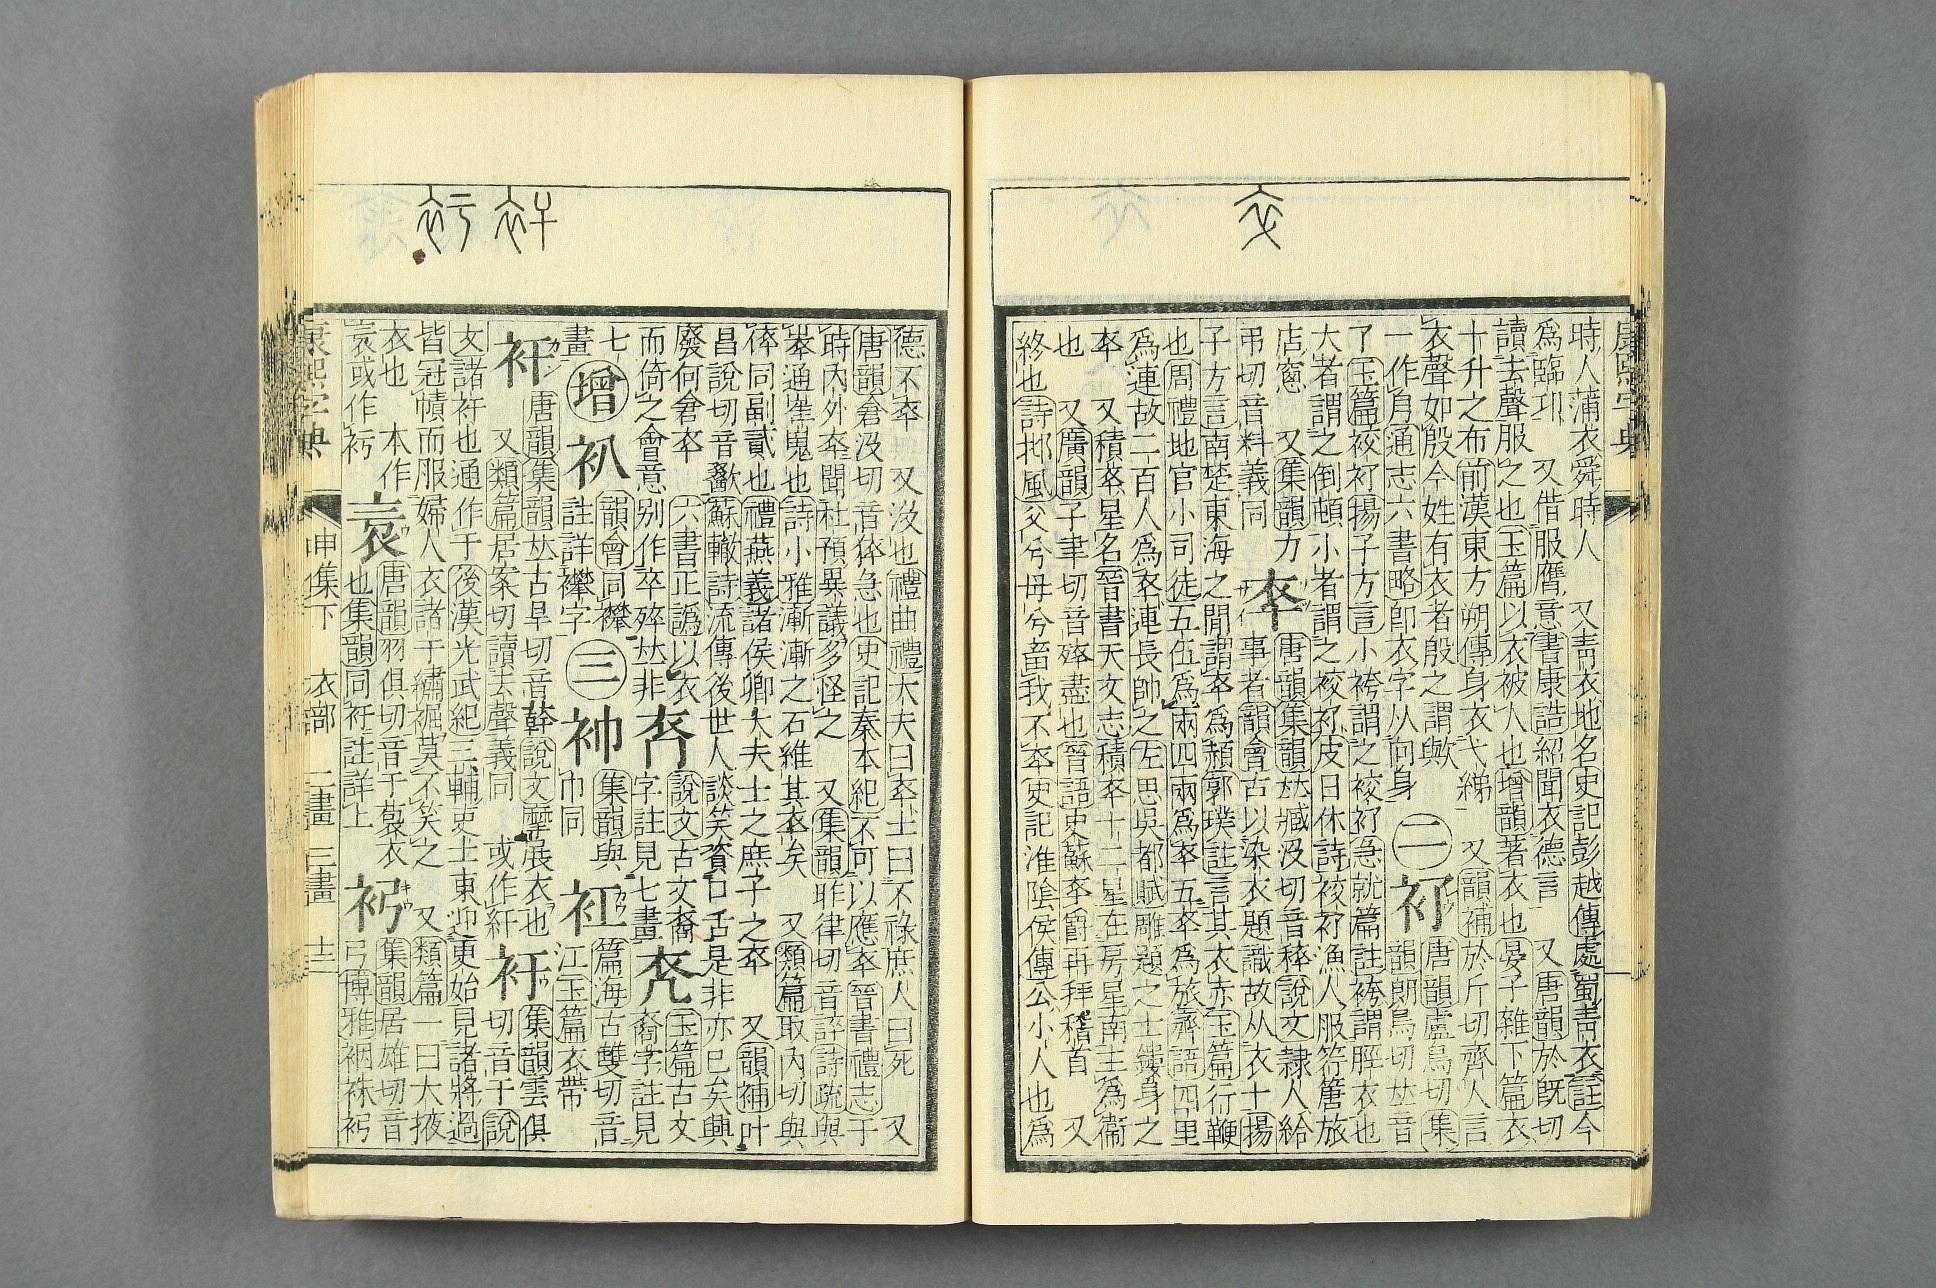 時人蒲衣舜時人　又靑衣地名史記彭越傳處蜀靑衣註今
爲臨卭　又借服膺意書康誥紹聞衣德言　又唐韻於旣切
讀去聲服之也玉篇以衣被人也增韻著衣也晏子雜下篇衣
十升之布前漢東方朔傳身衣弋綈　又韻補於斤切齊人言
衣聲如殷今姓有衣者殷之謂與
一作㐆通志六書略卽衣字从向身
二
衤了
唐韻盧鳥切集
韻朗鳥切𠀤音
了玉篇衤交衤了揚子方言小袴謂之衤交衤了急就篇註袴謂脛衣也
大者謂之倒頓小者謂之衤交衤了皮日休詩衤交衤了漁人服筓簹旅
店窻　又集韻力
弔切音料義同
卒
唐韻集韻𠀤臧沒切音稡說文隸人給
事者韻會古以染衣題識故从衣十揚
子方言南楚東海之閒謂卒爲赭郭璞註言其衣赤玉篇行鞭
也周禮地官小司徒五伍爲兩四兩爲卒五卒爲旅齊語四里
爲連故二百人爲卒連長帥之左思吳都賦雕題之士鏤身之
卒　又積卒星名晉書天文志積卒十二星在房星南主爲衞
也　又廣韻子聿切音崒盡也晉語史蘇卒爵再拜稽首　又
終也詩邶風父兮母兮畜我不卒史記淮陰侯傳公小人也爲
德不卒　又沒也禮曲禮大夫曰卒士曰不祿庶人曰死　又
唐韻倉沒切音猝急也史記秦本紀不可以應卒晉書禮志于
時內外卒聞社預異議多怪之　又集韻昨律切音誶詩疏與
崒通崔嵬也詩小雅漸漸之石維其卒矣　又類篇取內切與
倅同副貳也禮燕義諸侯卿大夫士之庶子之卒　又韻補叶
昌說切音歠蘇轍詩流傳後世人談笑資口舌是非亦已矣興
廢何倉卒　六書正譌以衣
而倚之會意別作卒猝𠀤非
說文古文裔
字註見七畫
玉篇古文
裔字註見
七
畫
增
衤八
韻會同襻
註詳襻字
三
衤巾
集韻與
巾同
衤工
篇海古雙切音
江玉篇衣帶
衦
唐韻集韻𠀤古旱切音幹說文摩展衣也
又類篇居案切讀去聲義同　或作紆
衧
集韻雲俱
切音于說
文諸衧也通作于後漢光武紀三輔吏士東迎更始見諸將過
皆冠幘而服婦人衣諸于繡镼莫不笑之　又類篇一曰大掖
衣也　本作
袬或作衧
袬
唐韻羽俱切音于裒衣
也集韻同衧註詳上
衤弓
集韻居雄切音
弓博雅裀袾衤弓
康熙字典　申集下　衣部　二畫　三畫　十三